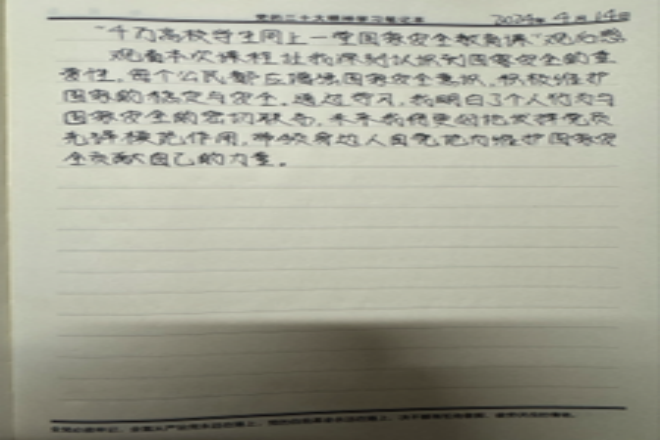 党的二十大精神学习笔记本 2024年4月14日
“千万高校学生同上一堂国家安全教育课”观后感
观看本次课程让我深刻认识到国家安全的重
要性,每个公民都应增强国家安全意识,积极维护
国家的稳定与安全。通过学习,我明白了个人行为与
国家安全的密切联系,未来我将更好地发挥党员
先锋模范作用,带领身边人自觉地为维护国家安
全贡献自己的力量。